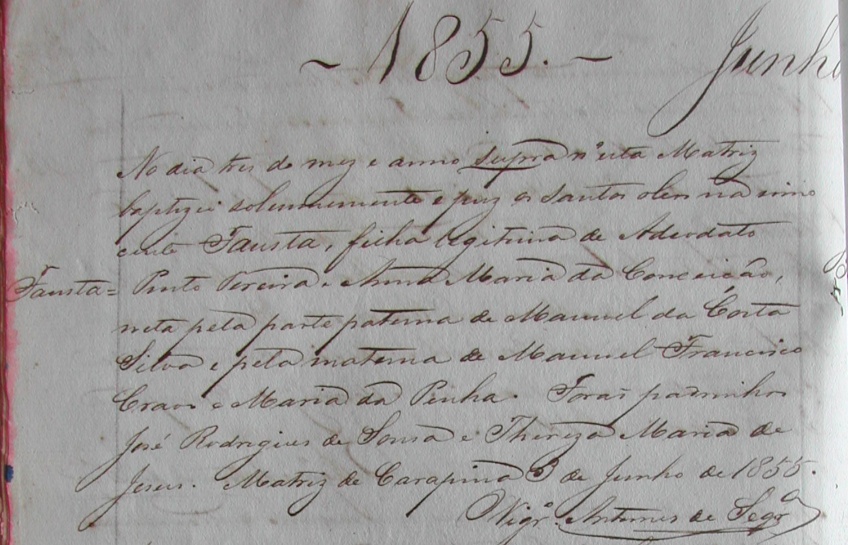 ~ 1855. ~ Junho
No dia tres do mez e anno supra n'esta Matriz
baptizei solemnemente e puz os santos oleos na inno
cente Fausta, filha legitima de Adeodato
Fausta = Pinto Pereira e Anna Maria da Conceição,
neta pela parte paterna de Manuel da Costa
Silva e pela materna de Manuel Francisco
Cravo e Maria da Penha. Forão padrinhos
José Rodrigues de Sousa e Thereza Maria de
Jesus. Matriz de Carapina 3 de Junho de 1855.
Vigr.o Antunes de Segr.a